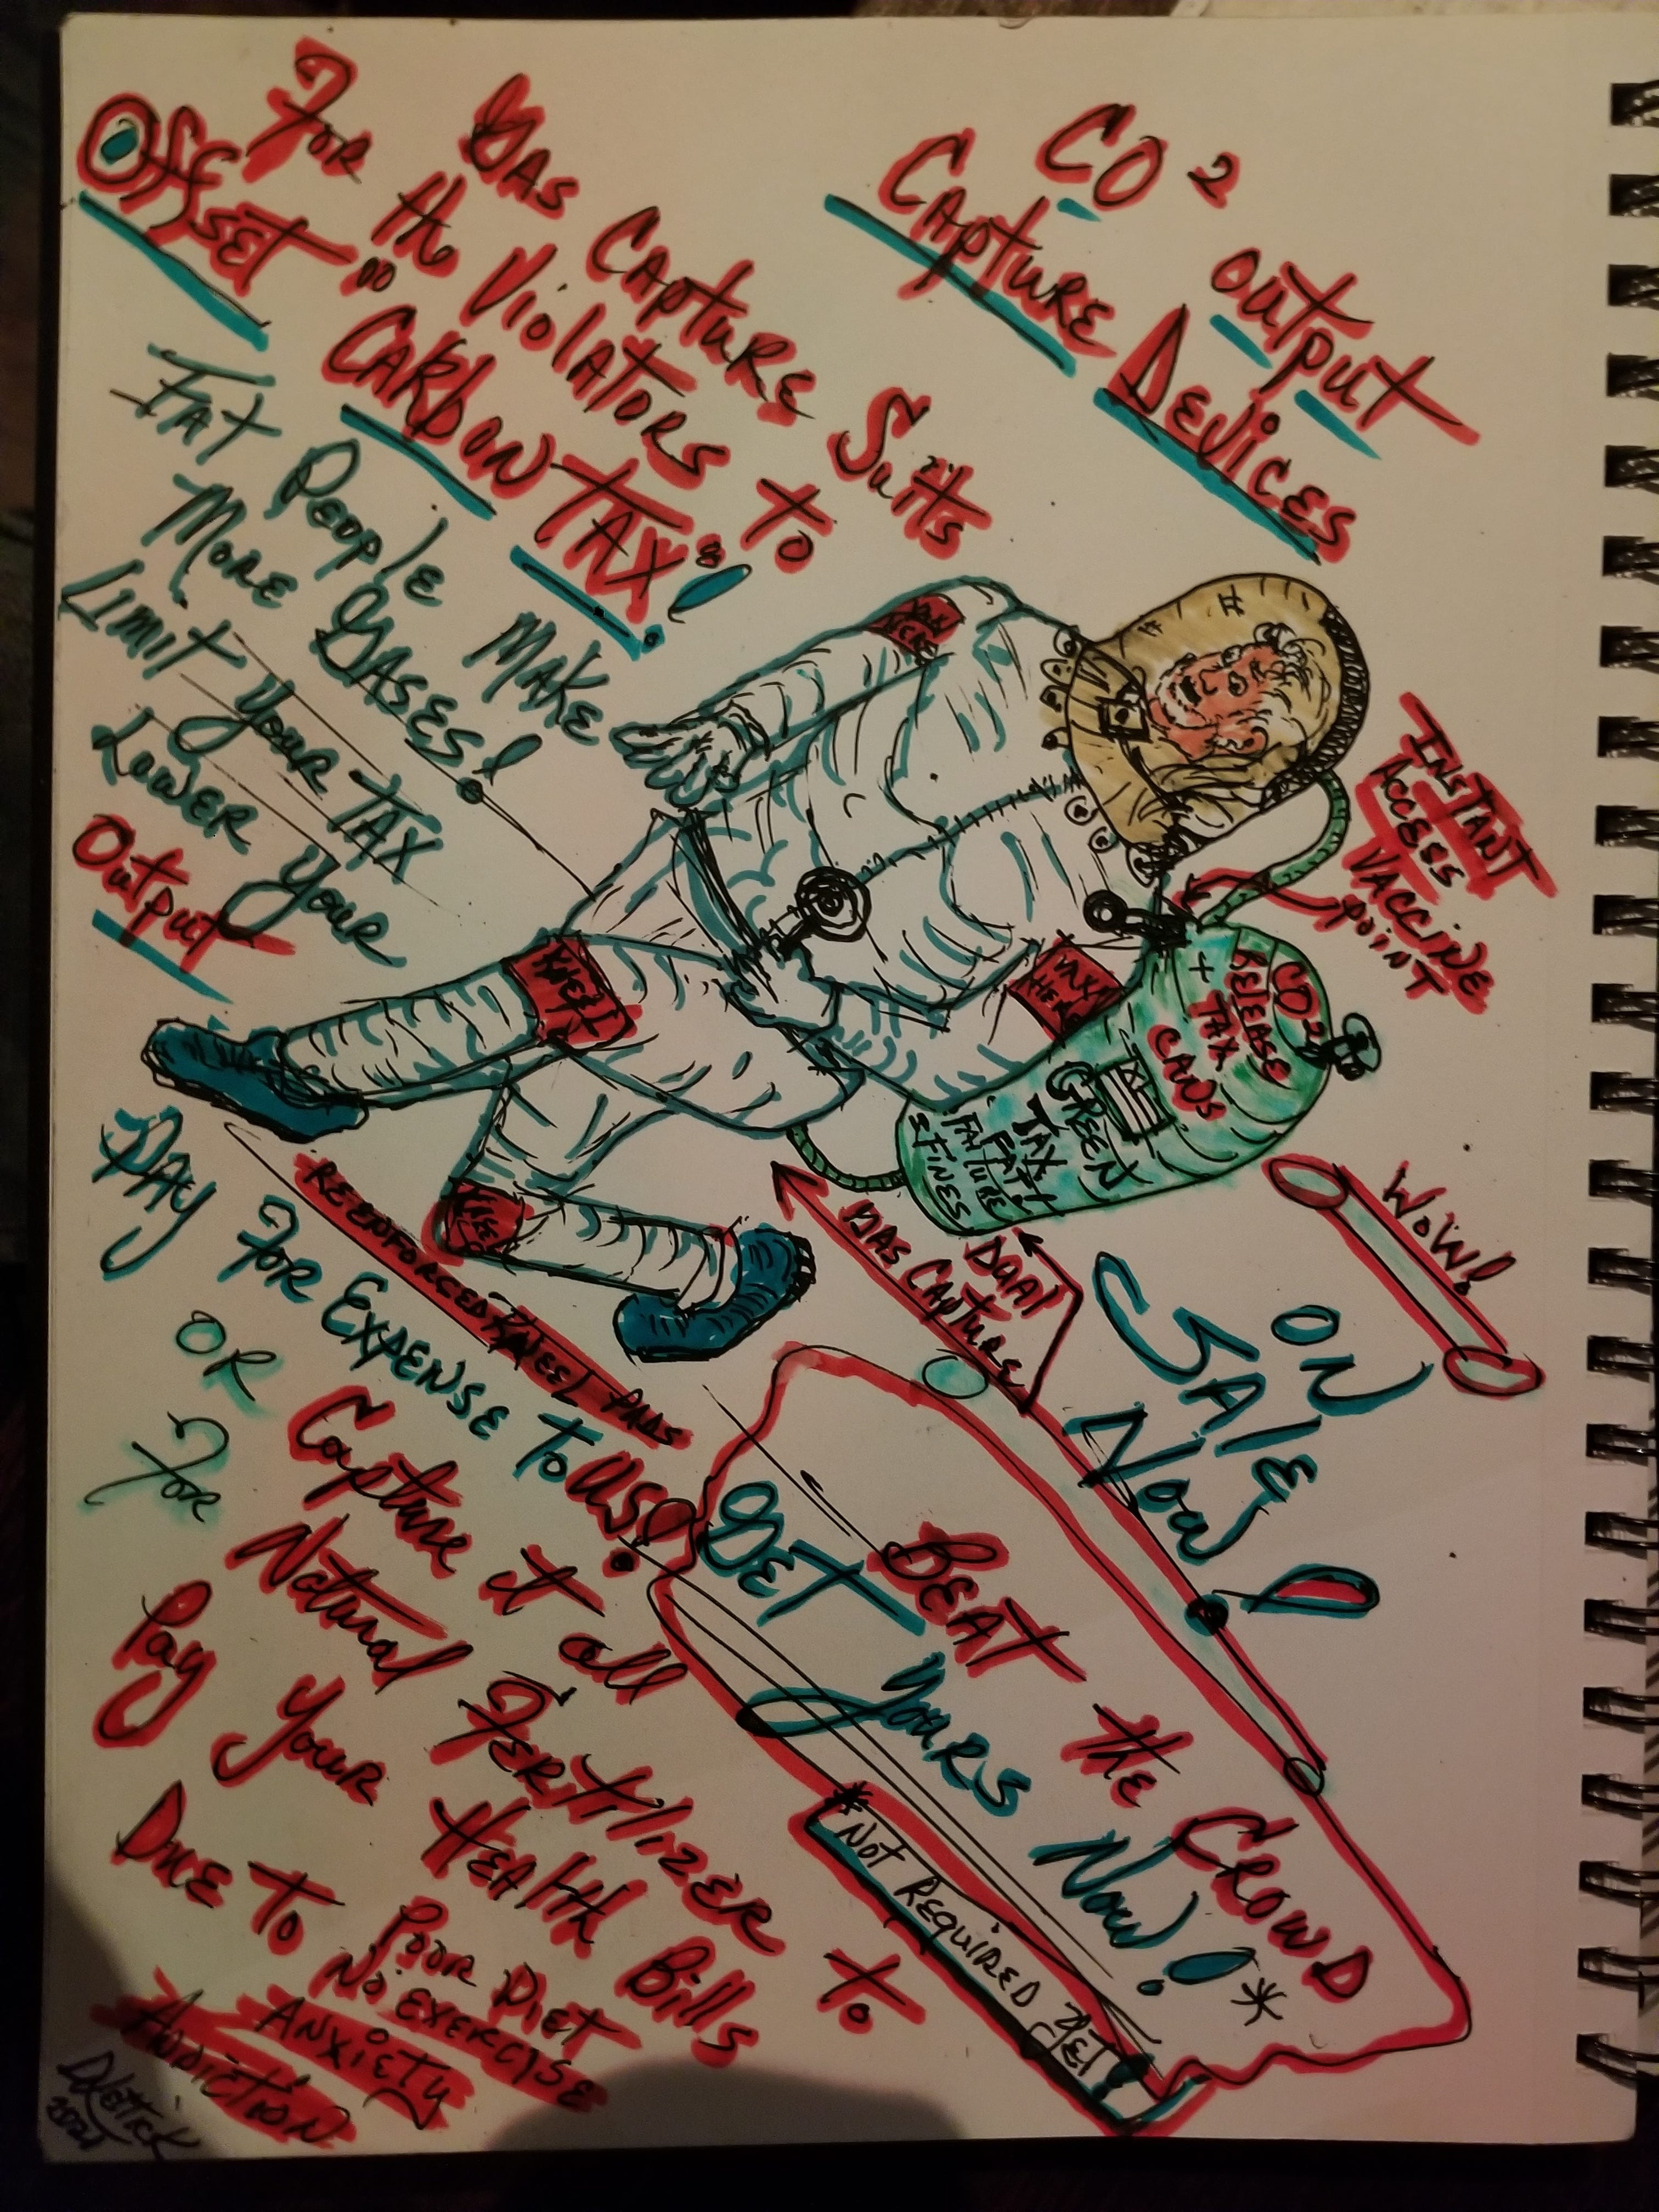 CO² output
Capture Devices
Gas Capture Suits
For the Violators to
Offset CARbON TAX!
FAT People MAKE
MORE GASES!
LIMIT YOUR TAX
LOWER YOUR
OutPut
INSTANT
ACCESS
VACCINE
POINT
TAX
KNEEL
TAX
CO2
RELEASE
+ TAX
CANOS
GREEN
TAX
FART
FAILURE
FINES
WOW!
Dual
GAS CAPTURE
REENFORCED KNEEL PADS
ON
SALE
NOW!
PAY FOR EXPENSE TO US!
OR Capture it all
For Natural FERTILIZER to
PAY YOUR HEAlth Bills
DUE TO POOR DIET
NO EXERCISE
ANXIETY
ADDICTION
BEAT the CROWD
GET YOURS NOW! *
* NOT REQUIRED YET!